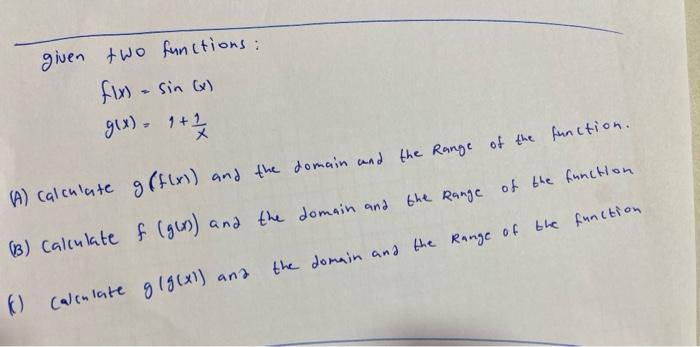 given two functions:
f(x) = sin (x)
g(x) = 1 + 1/x
(A) Calculate g(f(x)) and the domain and the Range of the function.
(B) Calculate f (g(x)) and the domain and the Range of the function
(C) Calculate g(g(x)) and the domain and the Range of the function